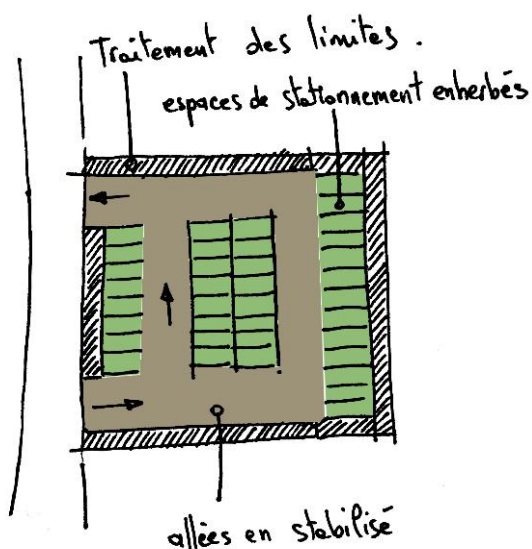 Traitement des limites.
espaces de stationnement enherbés
allées en stabilisé